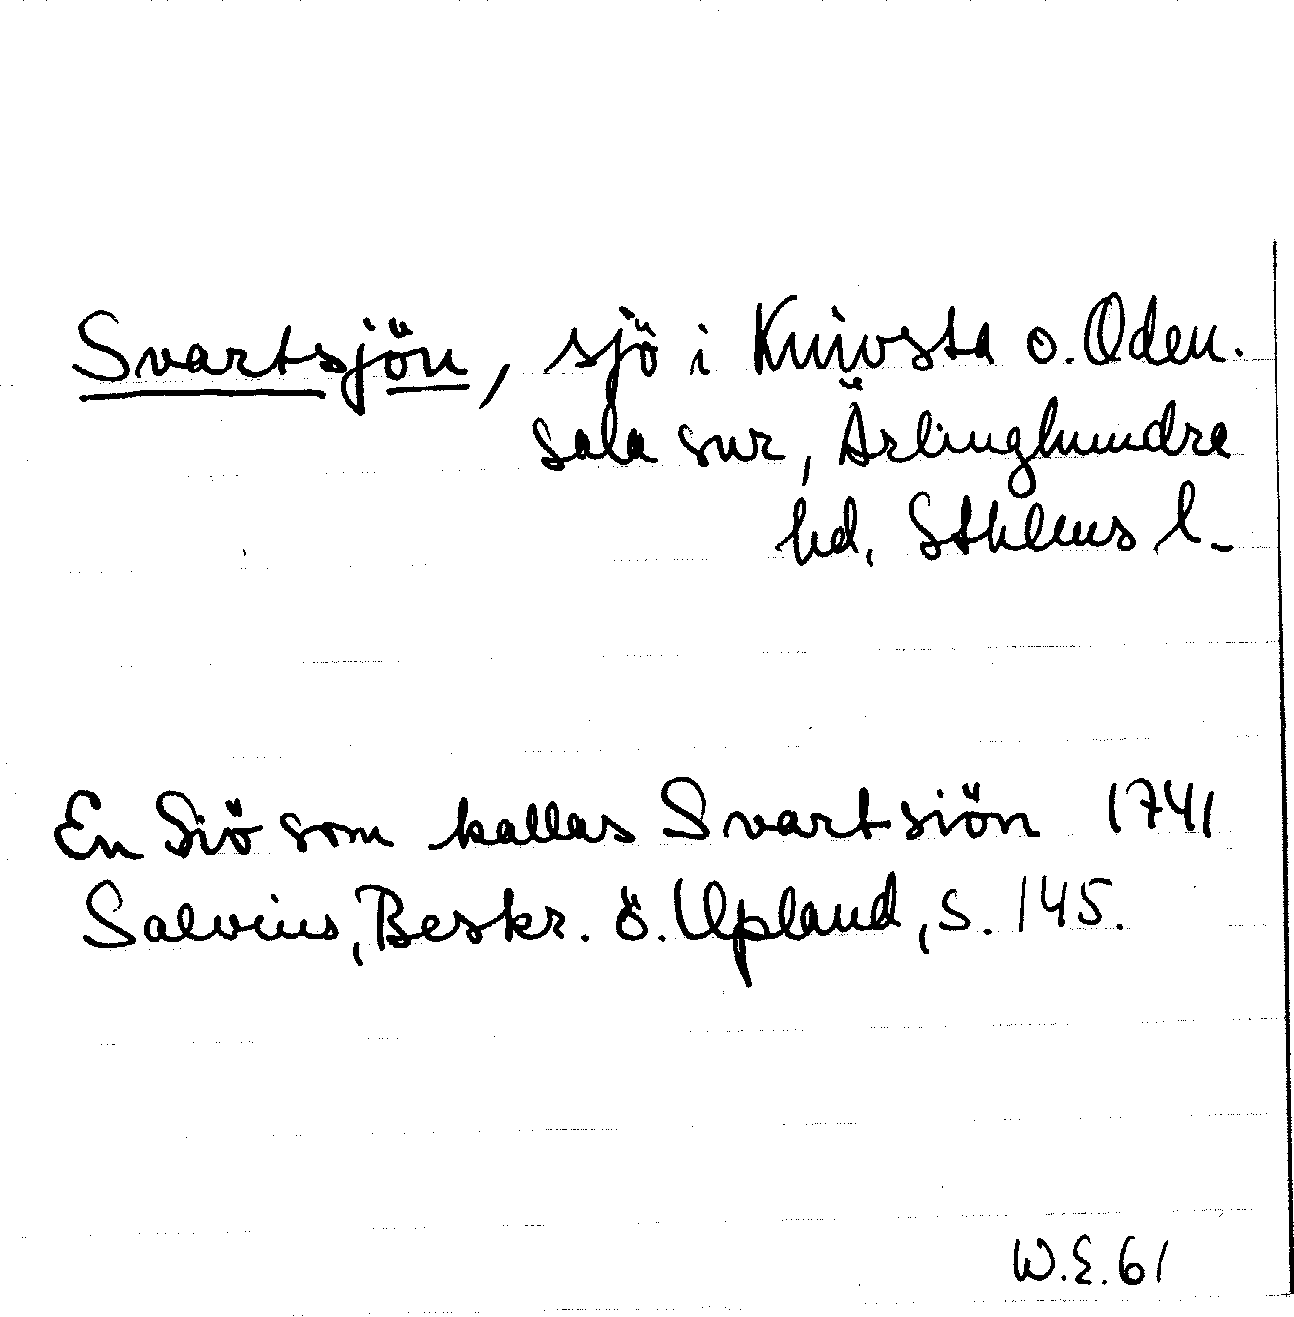 Svartsjön, sjö i Knivsta o. Oden.
sala snr, Ärlinghundra
hd, Sthlms l.
En Siö som kallas Svartsiön 1741
Salvius, Beskr. ö. Upland, s. 145.
W.E. 61